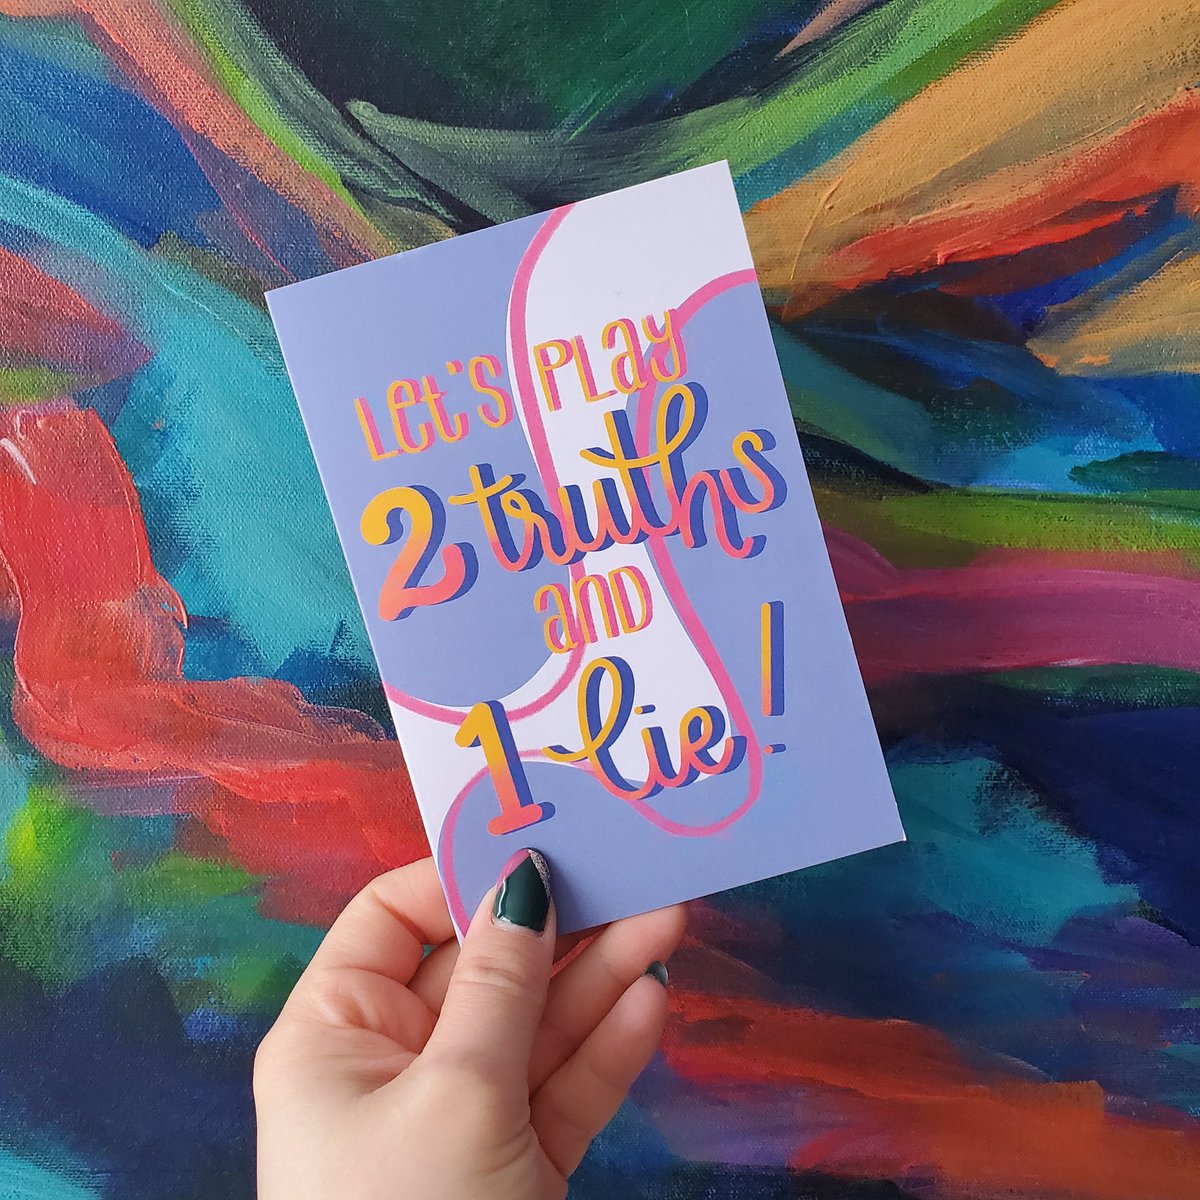 Let's PLay
2 truths
anD
1 lie!